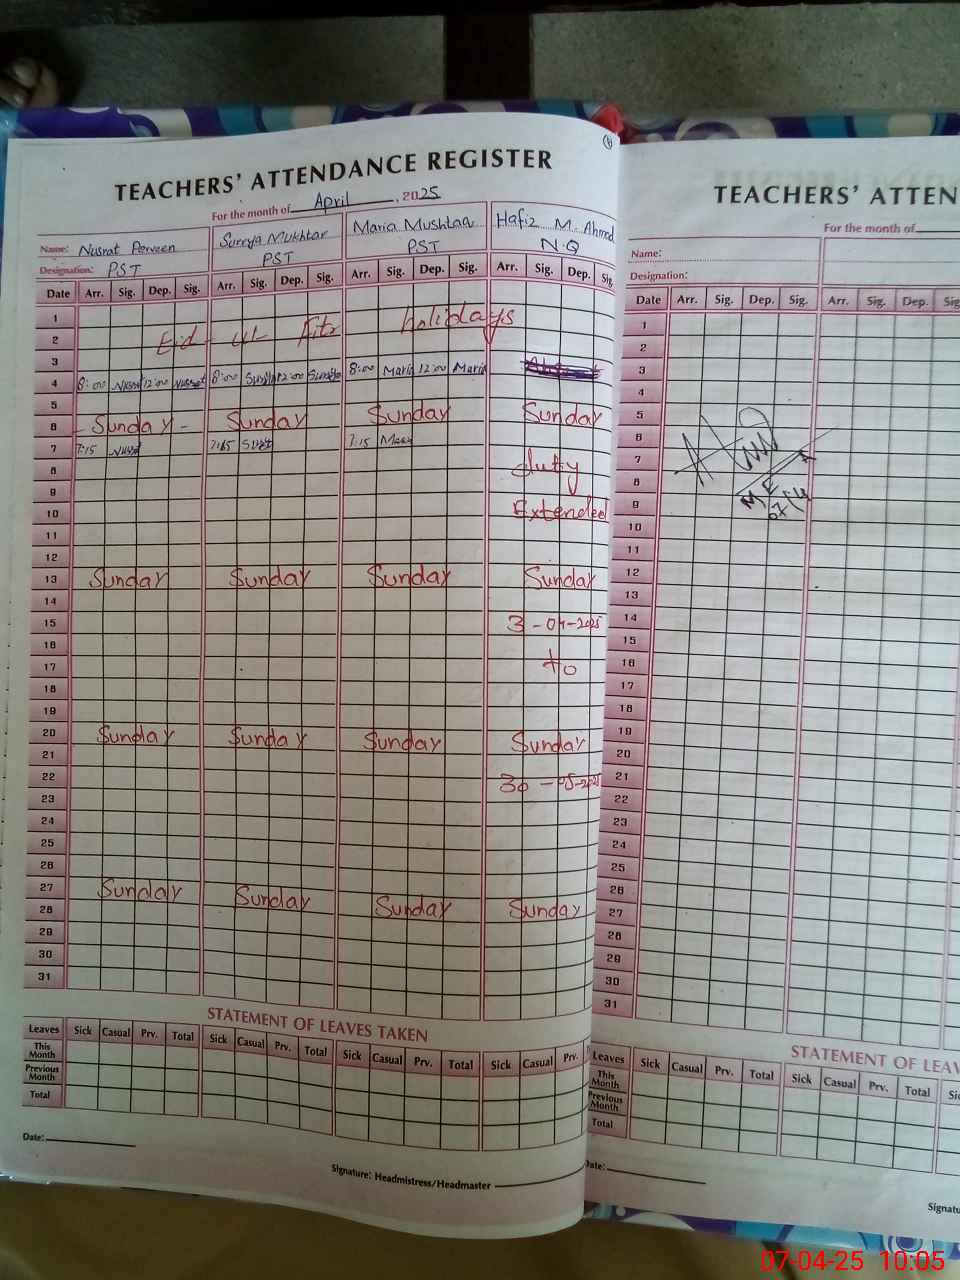 TEACHERS' ATTENDANCE REGISTER
For the month of April, 2025
Name: Nusrat Parveen Surrya Mukhtar Maria Mushtaq Hafiz M. Ahmad
Designation: PST PST PST N.Q
Date Arr. Sig. Dep. Sig. Arr. Sig. Dep. Sig. Arr. Sig. Dep. Sig. Arr. Sig. Dep. Sig.
1
2 Eid-ul-Fitr holidays
3
4 8:00 Nusrat 12:00 Nusrat 8:00 12:00 8:00 Maria 12:00 Maria
5
6 -Sunday- Sunday Sunday Sunday
7 7:15 7:15 7:15
8 duty
9
10 Extended
11
12
13 Sunday Sunday Sunday Sunday
14
15 3-04-2025
16
17 to
18
19
20 Sunday Sunday Sunday Sunday
21
22 30-05-2025
23
24
25
26
27 Sunday Sunday Sunday Sunday
28
29
30
31
STATEMENT OF LEAVES TAKEN
Leaves Sick Casual Prv. Total Sick Casual Prv. Total Sick Casual Prv. Total Sick Casual Prv.
This Month
Previous Month
Total
Date:
Signature: Headmistress/Headmaster
TEACHERS' ATTEN
For the month of
Name:
Designation:
Date Arr. Sig. Dep. Sig. Arr. Sig. Dep. Sig
1
2
3
4
5
6
7
8
9
10
11
12
13
14
15
16
17
18
19
20
21
22
23
24
25
26
27
28
29
30
31
MEA
07/4
STATEMENT OF LEAV
Leaves Sick Casual Prv. Total Sick Casual Prv. Total Sic
This Month
Previous Month
Total
Date:
Signatu
07-04-25 10:05